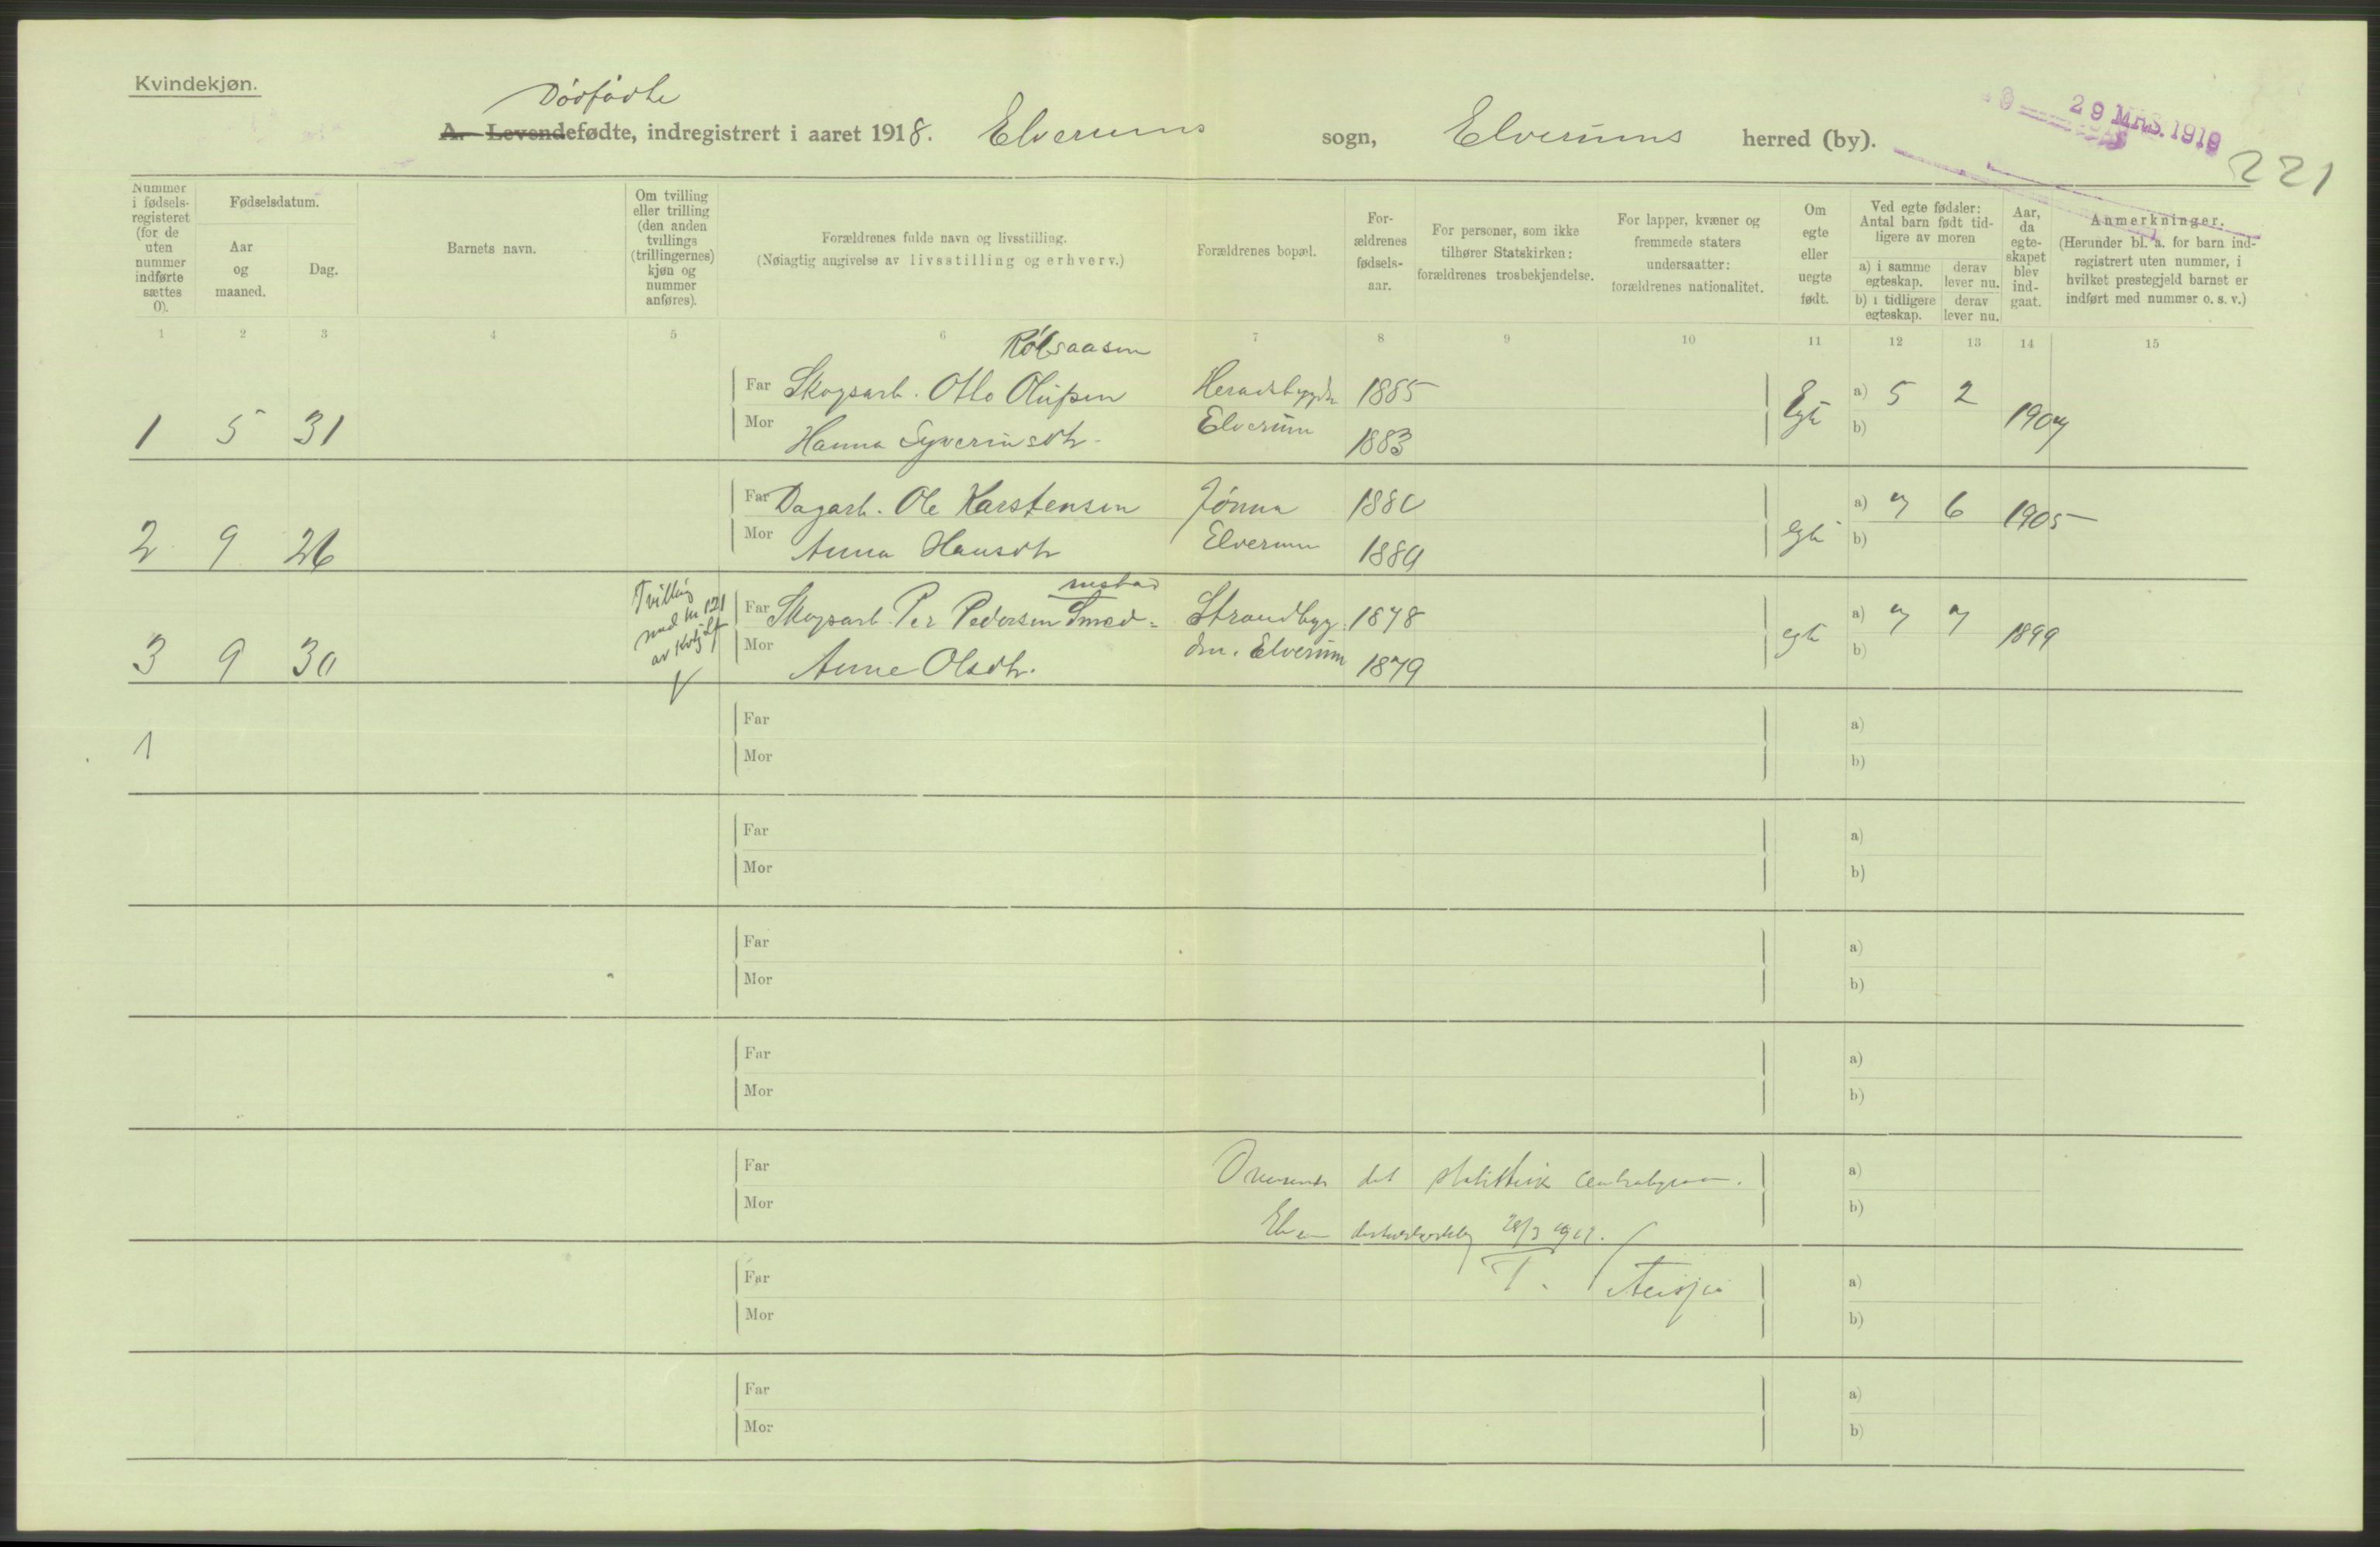 Kvindekjøn.
Dødfødte
A. Levendefødte, indregistrert i aaret 1918. Elverums sogn, Elverums herred (by).
29 MRS. 1919
221
Nummer i fødsels-registeret (for de uten nummer indførte sættes 0).
Fødselsdatum.
Aar og maaned.
Dag.
Barnets navn.
Om tvilling eller trilling (den anden tvillings (trillingernes) kjøn og nummer anføres).
Forældrenes fulde navn og livsstilling.
(Nøiagtig angivelse av livsstilling og erhverv.)
Forældrenes bopæl.
For-ældrenes fødsels-aar.
For personer, som ikke tilhører Statskirken: forældrenes trosbekjendelse.
For lapper, kvæner og fremmede staters undersaatter: forældrenes nationalitet.
Om egte eller uegte født.
Ved egte fødsler: Antal barn født tid-ligere av moren
a) i samme egteskap. derav lever nu.
b) i tidligere egteskap. derav lever nu.
Aar, da egte-skapet blev ind-gaat.
Anmerkninger.
(Herunder bl. a. for barn ind-registrert uten nummer, i hvilket prestegjeld barnet er indført med nummer o. s. v.)
1 2 3 4 5 6 7 8 9 10 11 12 13 14 15
Far Skogsarb. Otto Olufsen Heradsbygda 1885 a) 5 2
1 5 31 Egte 1907
Mor Hanna Syverinsdtr. Elverum 1883 b)
Far Dagarb. Ole Karstensen Jømna 1880 a) 7 6
2 9 26 egte 1905
Mor Anna Hansdtr Elverum 1889 b)
Tvilling med nr 121 av kvkj. lf
mestad
Far Skogsarb. Per Pedersen Smed- Strandbyg 1878 a) 7 7
3 9 30 egte 1899
Mor Anne Olsdtr. den. Elverum 1879 b)
V
Far a)
1
Mor b)
Far a)
Mor b)
Far a)
Mor b)
Far a)
Mor b)
Far det a)
Mor 28/3 1919. b)
Far T. a)
Mor b)
Far a)
Mor b)